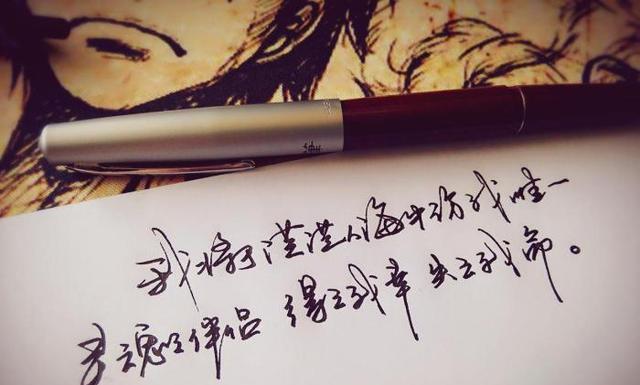 我将于茫茫人海中访我唯一
灵魂之伴侣 得之我幸 失之我命。